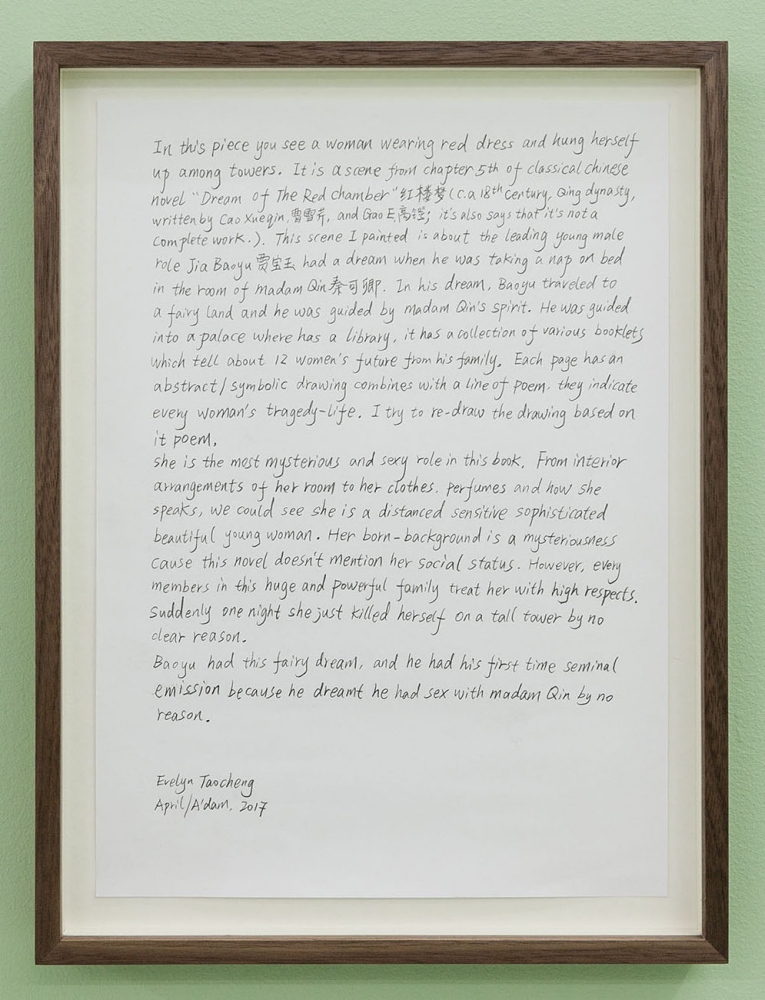 In this piece you see a woman wearing red dress and hung herself
up among towers. It is a scene from chapter 5th of classical chinese
novel "Dream of The Red chamber" 红楼梦 (c.a 18th Century, Qing dynasty,
written by Cao Xueqin, 曹雪芹, and Gao E, 高鹗; it's also says that it's not a
complete work.). This scene I painted is about the leading young male
role Jia Baoyu 贾宝玉 had a dream when he was taking a nap on bed
in the room of madam Qin 秦可卿. In his dream, Baoyu traveled to
a fairy land and he was guided by madam Qin's spirit. He was guided
into a palace where has a library, it has a collection of various booklets
which tell about 12 women's future from his family. Each page has an
abstract/symbolic drawing combines with a line of poem. they indicate
every woman's tragedy-life. I try to re-draw the drawing based on
it poem.
she is the most mysterious and sexy role in this book. From interior
arrangements of her room to her clothes. perfumes and how she
speaks, we could see she is a distanced sensitive sophisticated
beautiful young woman. Her born-background is a mysteriousness
cause this novel doesn't mention her social status. However, every
members in this huge and powerful family treat her with high respects.
suddenly one night she just killed herself on a tall tower by no
clear reason.
Baoyu had this fairy dream, and he had his first time seminal
emission because he dreamt he had sex with madam Qin by no
reason.
Evelyn Taocheng
April/A'dam. 2017